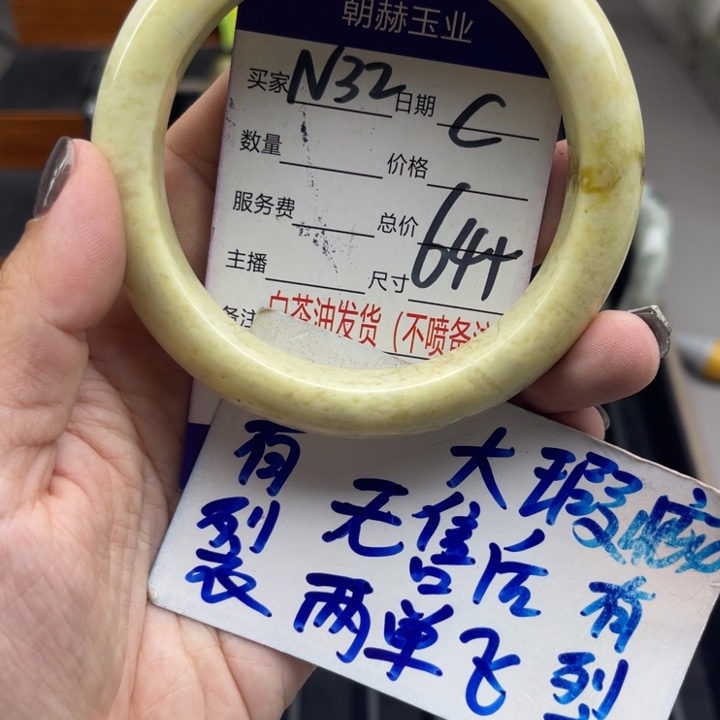 朝赫玉业
买家 N32 日期 C
数量 价格
服务费 总价 644
主播 尺寸
备注 白茶油发货（不喷备注
有裂 大瑕疵
无售后
两单飞
有裂